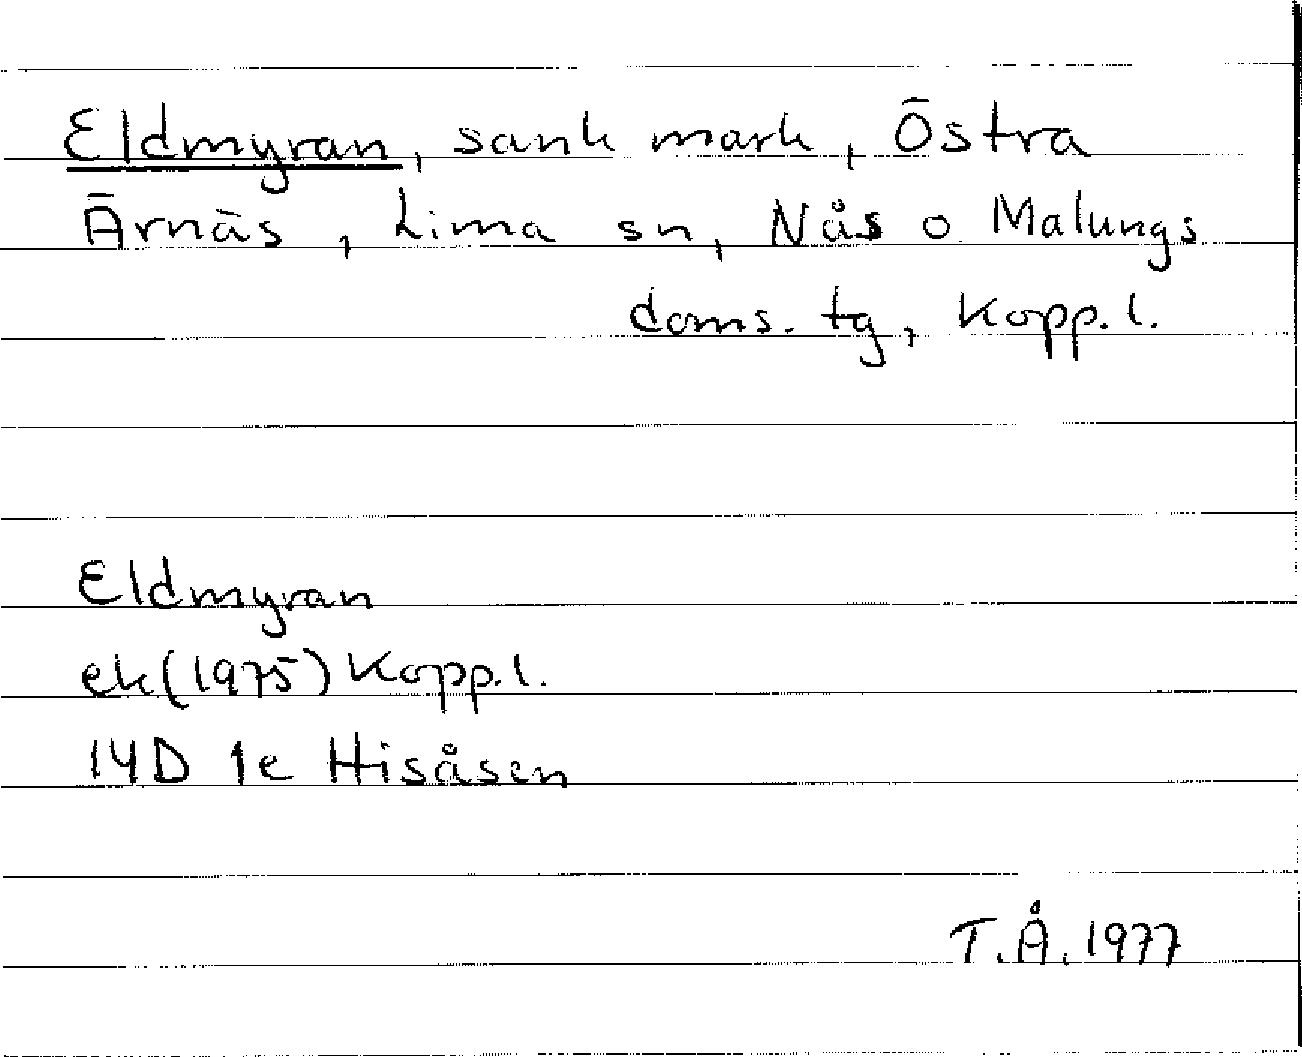 Eldmyran, sank mark, Östra
Ärnäs, Lima sn, Nås o Malungs
doms. tg, Kopp. l.
Eldmyran
ek (1975) Kopp. l.
14D 1e Hisåsen
T.Å. 1977